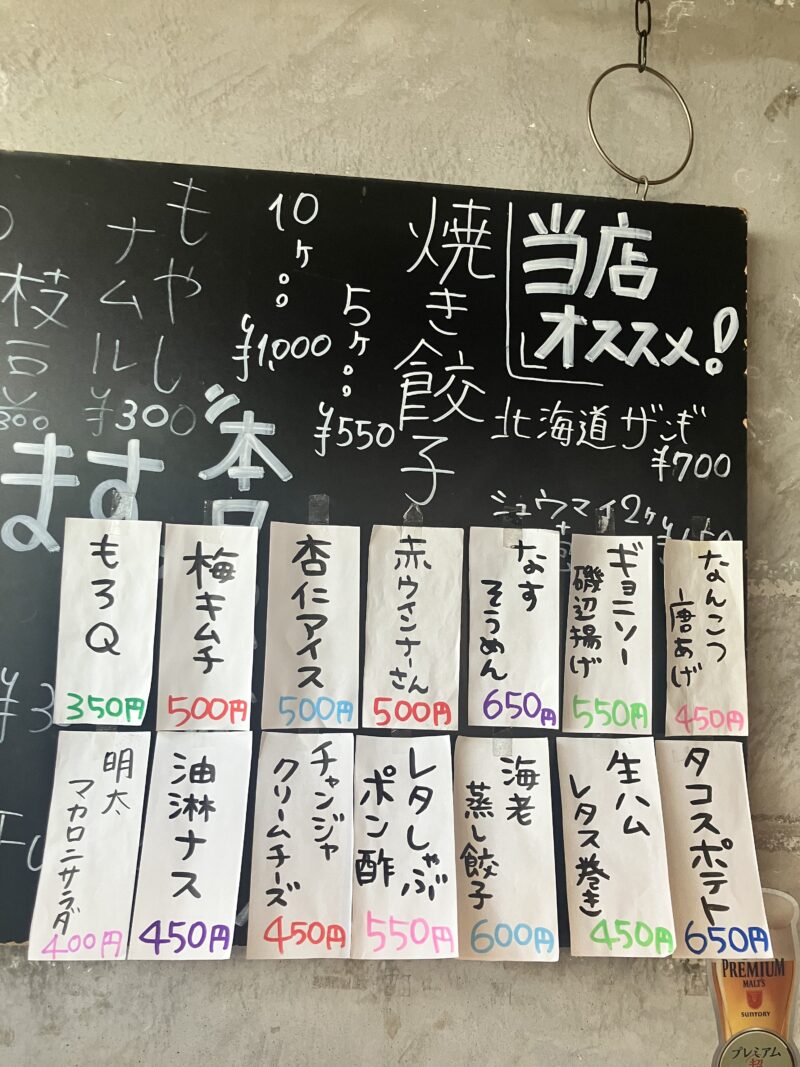 当店
オススメ!
焼き餃子
5ヶ。。¥550
10ヶ。。¥1,000
北海道ザンギ
¥700
シュウマイ2ヶ
もやし
ナムル
¥300
枝豆
¥300
本日
ます
なんこつ
唐あげ
450円
ギョニソー
磯辺揚げ
550円
なす
そうめん
650円
赤ウインナーさん
500円
杏仁アイス
500円
梅キムチ
500円
もろQ
350円
タコスポテト
650円
生ハム
レタス巻き
450円
海老
蒸し餃子
600円
レタしゃぶ
ポン酢
550円
チャンジャ
クリームチーズ
450円
油淋ナス
450円
明太
マカロニサラダ
400円
PREMIUM
MALT'S
SUNTORY
プレミアム
超